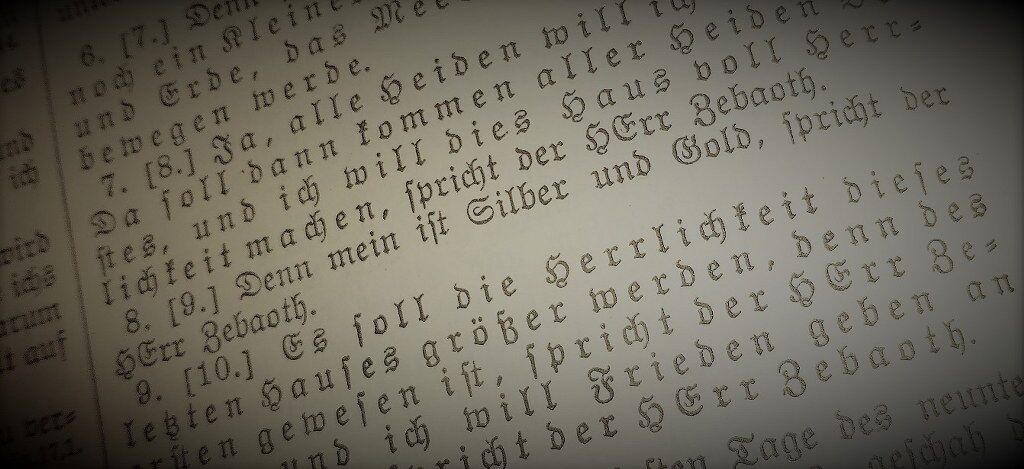 6. [7.] Denn
noch ein kleines
und Erde, das Mee
bewegen werde.
7. [8.] Ja, alle Heiden will ich
Da soll dann kommen aller Heiden
stes, und ich will dies Haus voll Herr-
lichkeit machen, spricht der HErr Zebaoth.
8. [9.] Denn mein ist Silber und Gold, spricht der
HErr Zebaoth.
9. [10.] Es soll die Herrlichkeit dieses
letzten Hauses größer werden, denn des
gewesen ist, spricht der HErr Ze-
und ich will Frieden geben an
spricht der HErr Zebaoth.
Tage des neunte
geschah